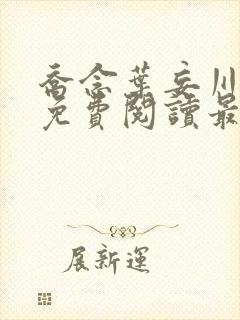 喬念葉妄川
免費閱讀最
展新運